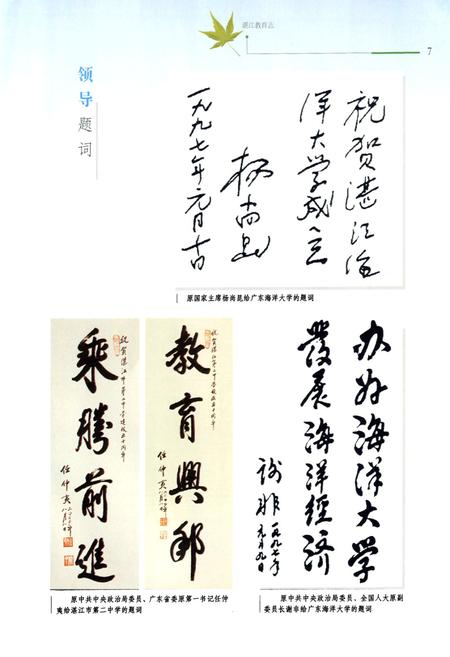 湛江教育志
7
领导题词
祝贺湛江海
洋大学成立
杨尚昆
一九九七年元月十日
原国家主席杨尚昆给广东海洋大学的题词
祝贺湛江市第二中学建校五十周年
乘胜前进
任仲夷
祝贺湛江市第二中学建校五十周年
教育兴邦
任仲夷
办好海洋大学
发展海洋经济
谢非
一九九七年
元月九日
原中共中央政治局委员、广东省委原第一书记任仲
夷给湛江市第二中学的题词
原中共中央政治局委员、全国人大原副
委员长谢非给广东海洋大学的题词